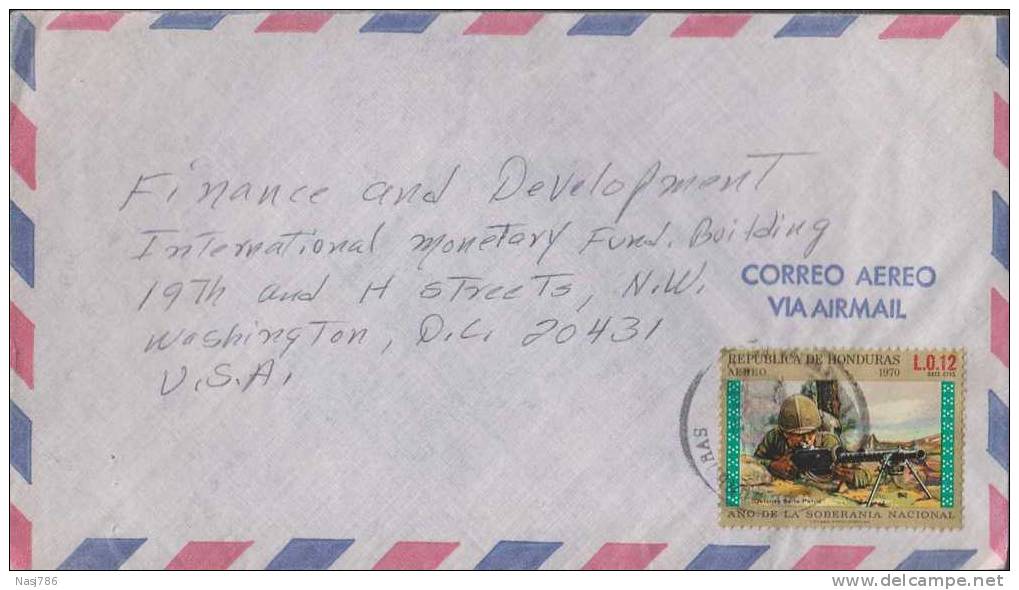 Finance and Development
International Monetary Fund. Building
19Th and H STreeTs, N.W.
Washington, D.C. 20431
U.S.A.
CORREO AEREO
VIA AIRMAIL
REPUBLICA DE HONDURAS L.0.12
AEREO 1970
Defensa de la Patria
AÑO DE LA SOBERANIA NACIONAL
RAS
Nasj786
delcampe.net